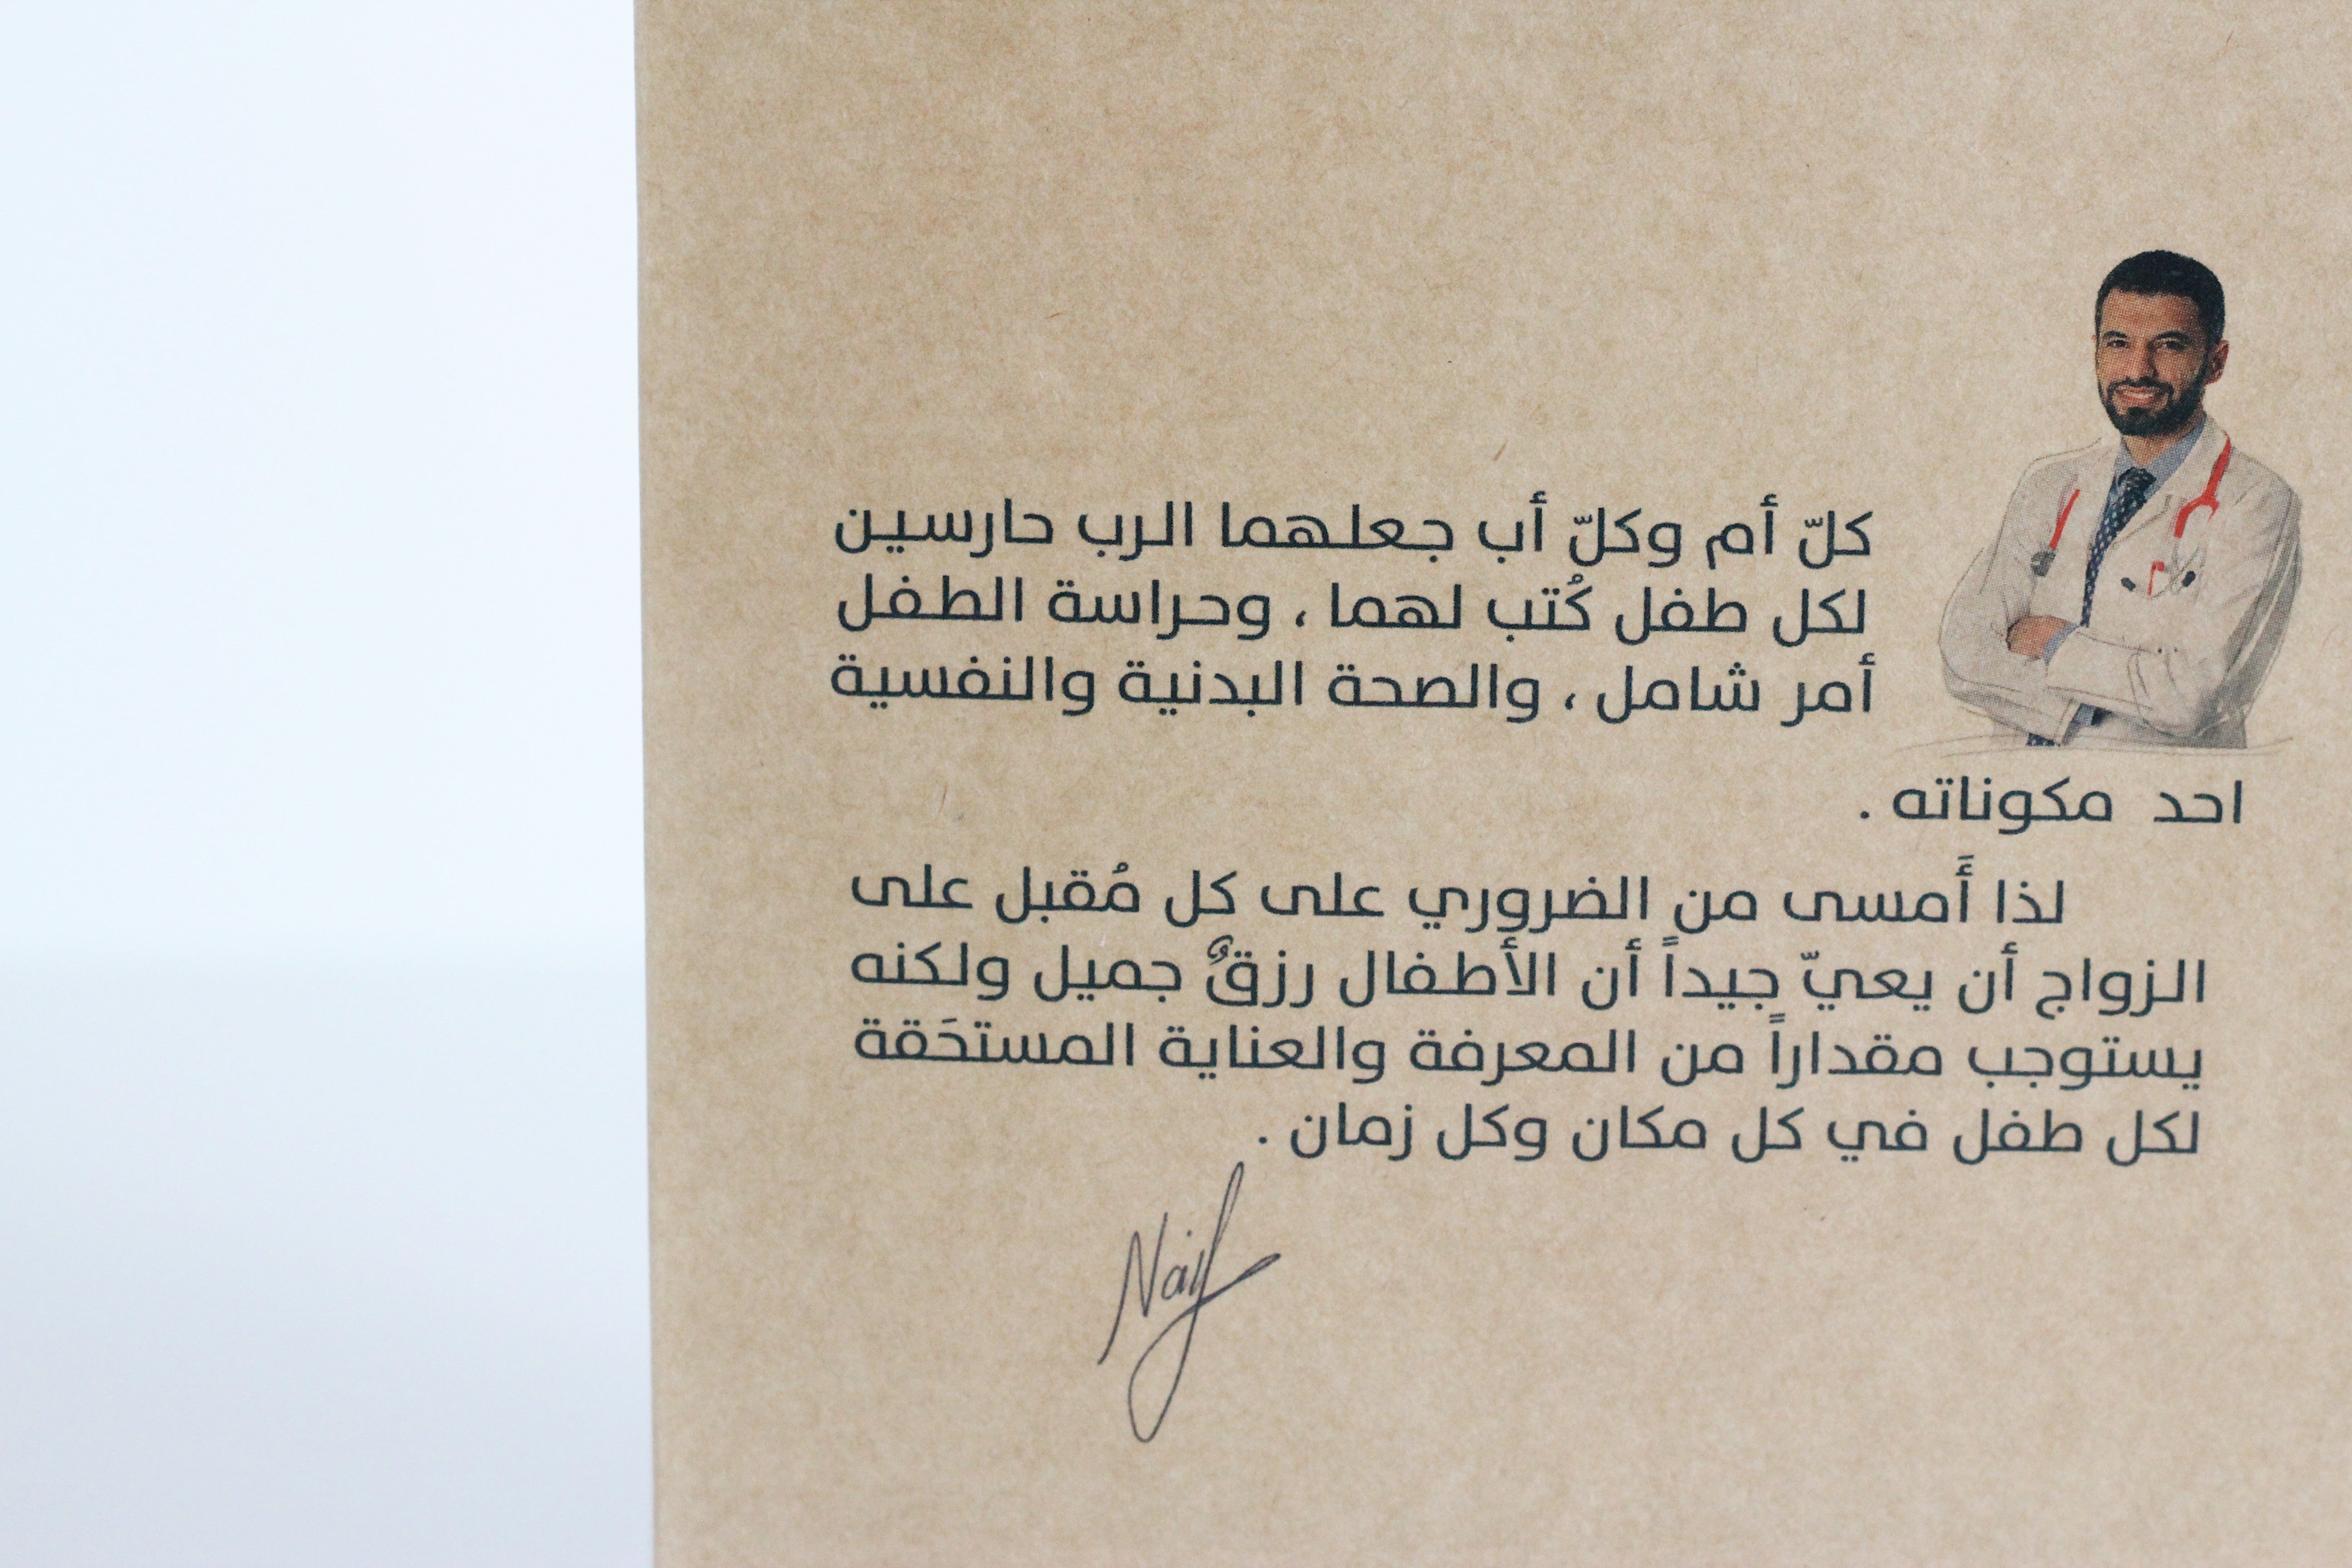 كلّ أم وكلّ أب جعلهما الرب حارسين
لكل طفل كُتب لهما ، وحراسة الطفل
أمر شامل ، والصحة البدنية والنفسية
احد مكوناته .
لذا أَمسى من الضروري على كل مُقبل على
الزواج أن يعيّ جيداً أن الأطفال رزقٌ جميل ولكنه
يستوجب مقداراً من المعرفة والعناية المستحَقة
لكل طفل في كل مكان وكل زمان .
Naif